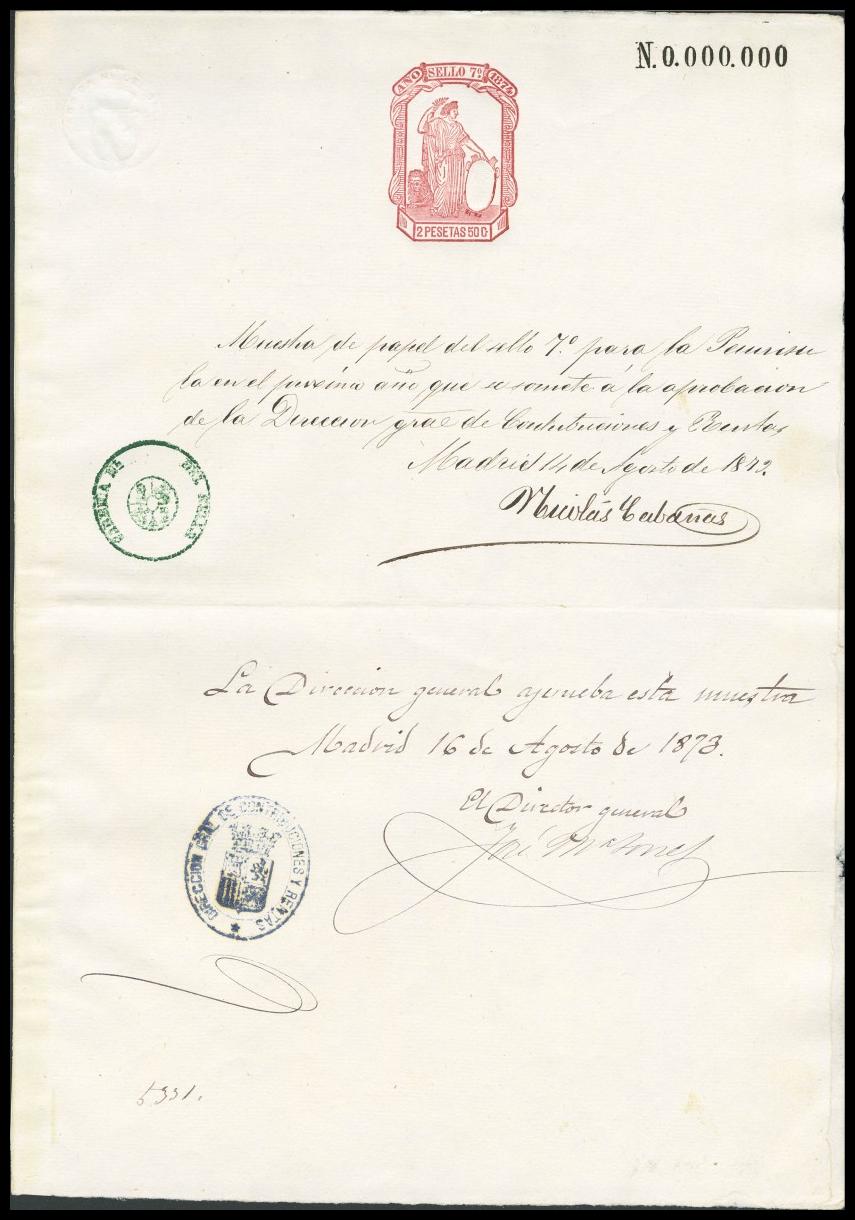 N. 0.000.000
AÑO SELLO 7º 1874
2 PESETAS 50 C.
Muestra de papel del sello 7º para la Peninsu
la en el proximo año que se somete á la aprobacion
de la Direccion gral de Contribuciones y Rentas
Madrid 14 de Agosto de 1873.
Nicolás Cabañas
DEL SELLO
La Dirección general aprueba esta muestra
Madrid 16 de Agosto de 1873.
El Director general
José Mª
DIRECCION GRAL DE CONTRIBUCIONES Y RENTAS
5331.